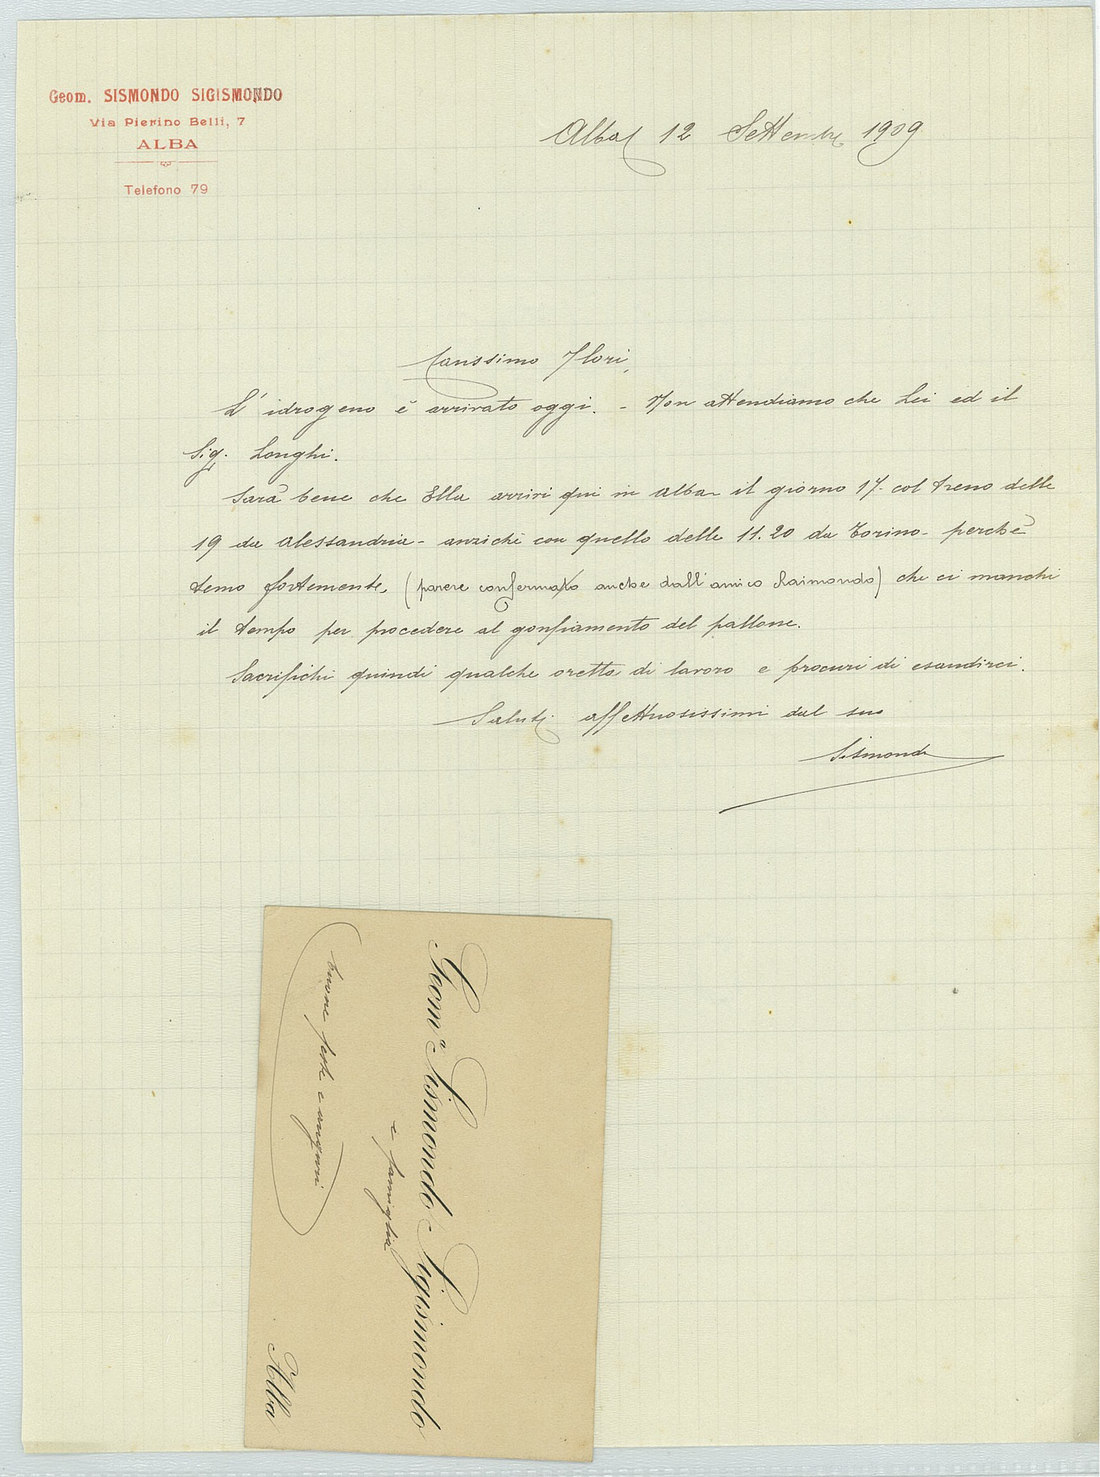 Geom. SISMONDO SIGISMONDO
Via Pierino Belli, 7
ALBA
Telefono 79
Alba, 12 Settembre 1909
Carissimo Flori,
L'idrogeno è arrivato oggi. - Non attendiamo che Lei ed il
Sig. Longhi.
Sarà bene che Ella arrivi qui in Alba il giorno 17 - col treno delle
19 da Alessandria - anzichè con quello delle 11.20 da Torino - perchè
temo fortemente, (parere confermato anche dall'amico Raimondo) che ci manchi
il tempo per procedere al gonfiamento del pallone.
Sacrifichi quindi qualche oretta di lavoro e procuri di esaudirci.
Saluti affettuosissimi dal suo
Sismondi
Geom.ª Sismondo Sigismondo
e famiglia
buone feste e auguri
Alba